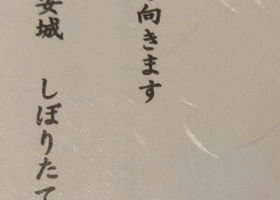 向きます
安城 しぼりたて